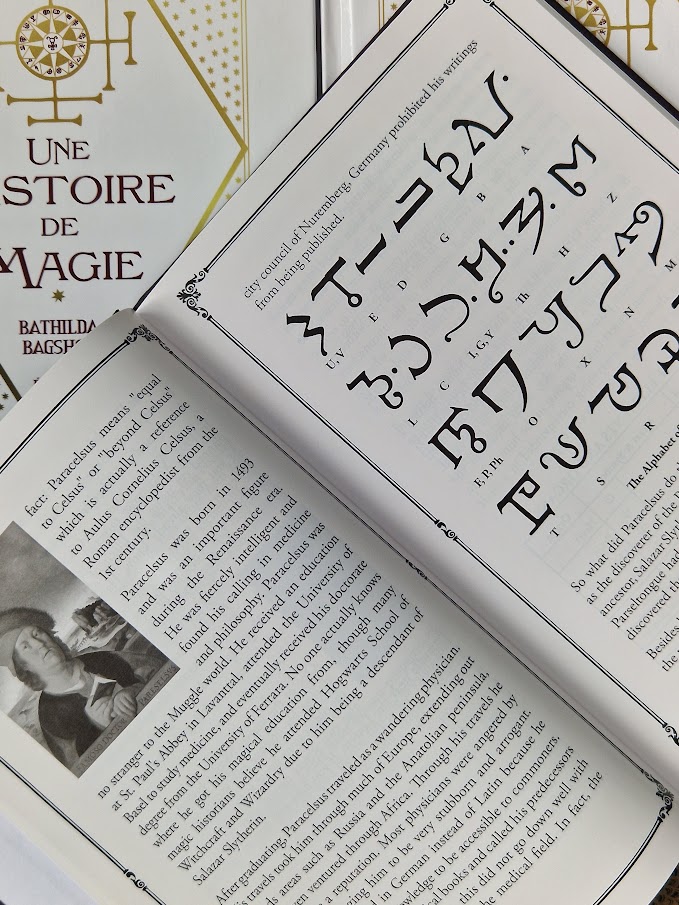 UNE
ISTOIRE
DE
MAGIE
BATHILDA
BAGSH
fact: Paracelsus means "equal
to Celsus" or "beyond Celsus"
which is actually a reference
to Aulus Cornelius Celsus, a
Roman encyclopedist from the
1st century.
Paracelsus was born in 1493
and was an important figure
during the Renaissance era.
He was fiercely intelligent and
found his calling in medicine
and philosophy. Paracelsus was
no stranger to the Muggle world. He received an education
at St. Paul's Abbey in Lavanttal, attended the University of
Basel to study medicine, and eventually received his doctorate
degree from the University of Ferrara. No one actually knows
where he got his magical education from, though many
magic historians believe he attended Hogwarts School of
Witchcraft and Wizardry due to him being a descendant of
Salazar Slytherin.
After graduating, Paracelsus traveled as a wandering physician.
is travels took him through much of Europe, extending out
ds areas such as Russia and the Anatolian peninsula,
en ventured through Africa. Through his travels he
a reputation. Most physicians were angered by
ring him to be very stubborn and arrogant.
l in German instead of Latin because he
wledge to be accessible to commoners.
ical books and called his predecessors
this did not go down well with
the medical field. In fact, the
city council of Nuremberg, Germany prohibited his writings
from being published.
U,V E D G B A
L C I,G,Y Th H Z
F,P,Ph O X N M
T S R
The Alphabet of
So what did Paracelsus do
as the discoverer of the
ancestor, Salazar
Parseltongue had
discovered
Besides
the